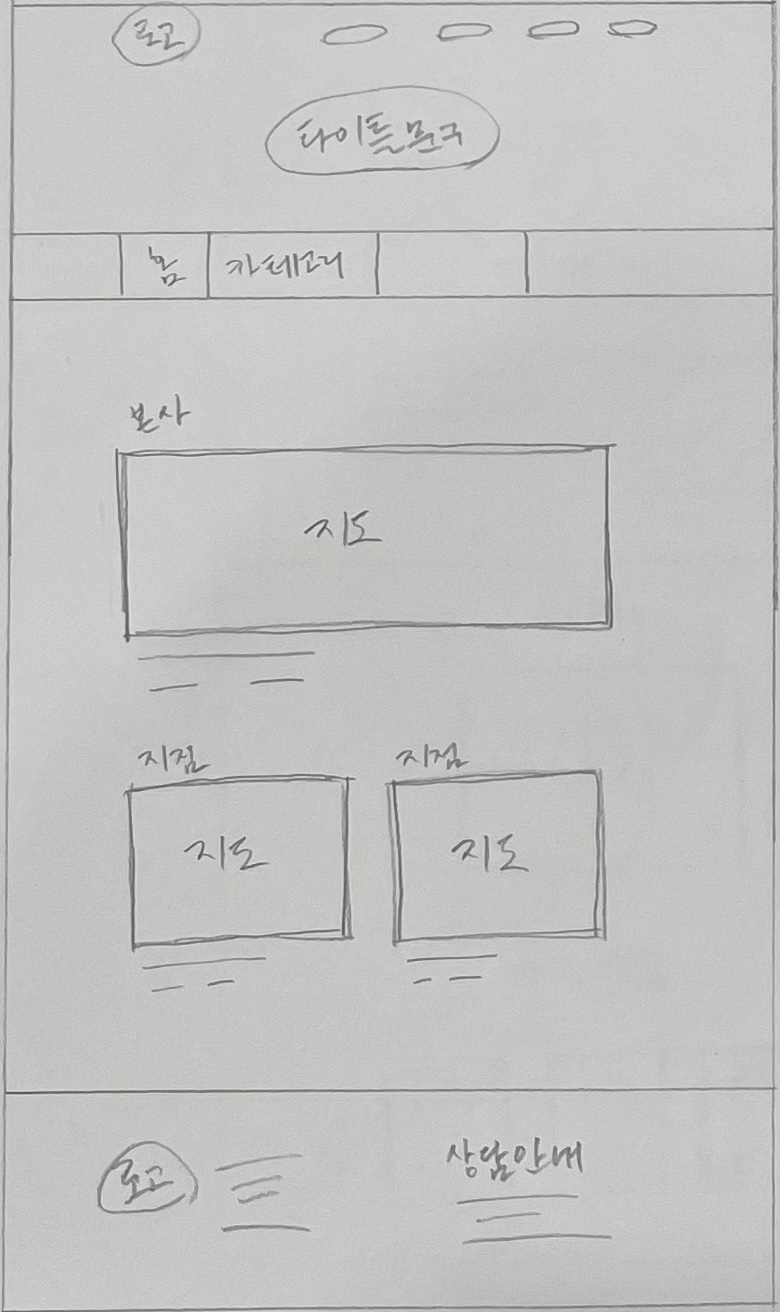 로고
타이틀문구
홈 카테고리
본사
지도
지점 지점
지도 지도
로고
상담안내